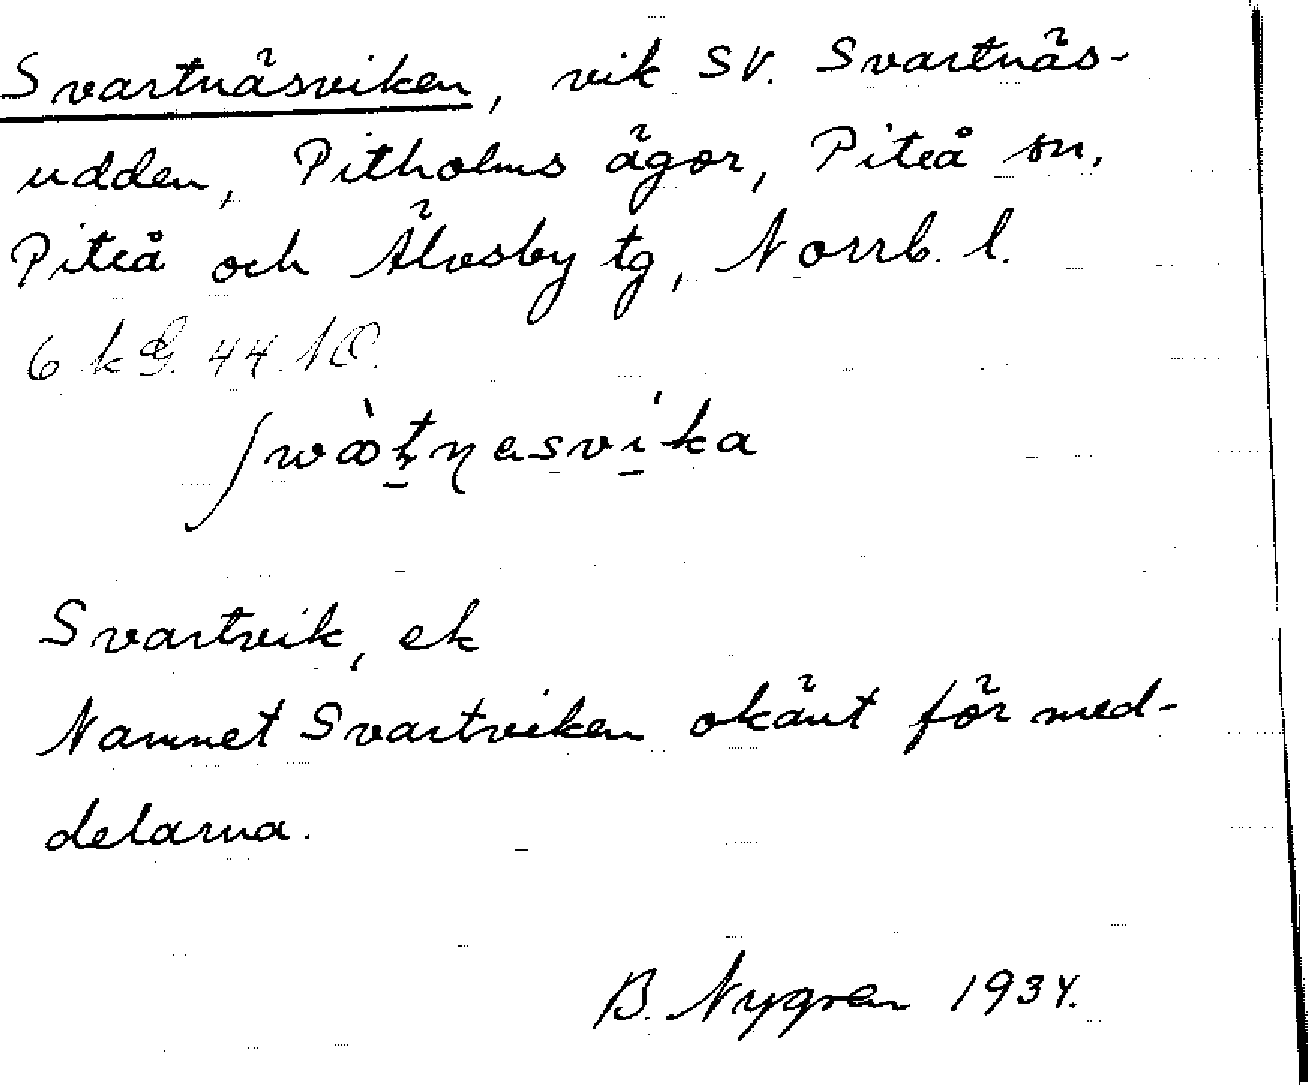 Svartnäsviken, vik SV. Svartnäs-
udden, Pitholms ägor, Piteå sn.
Piteå och Älvsby tg, Norrb. l.
6 k
Svartvik, ek
Namnet Svartviken okänt för med-
delarna.
B. Nygren 1934.